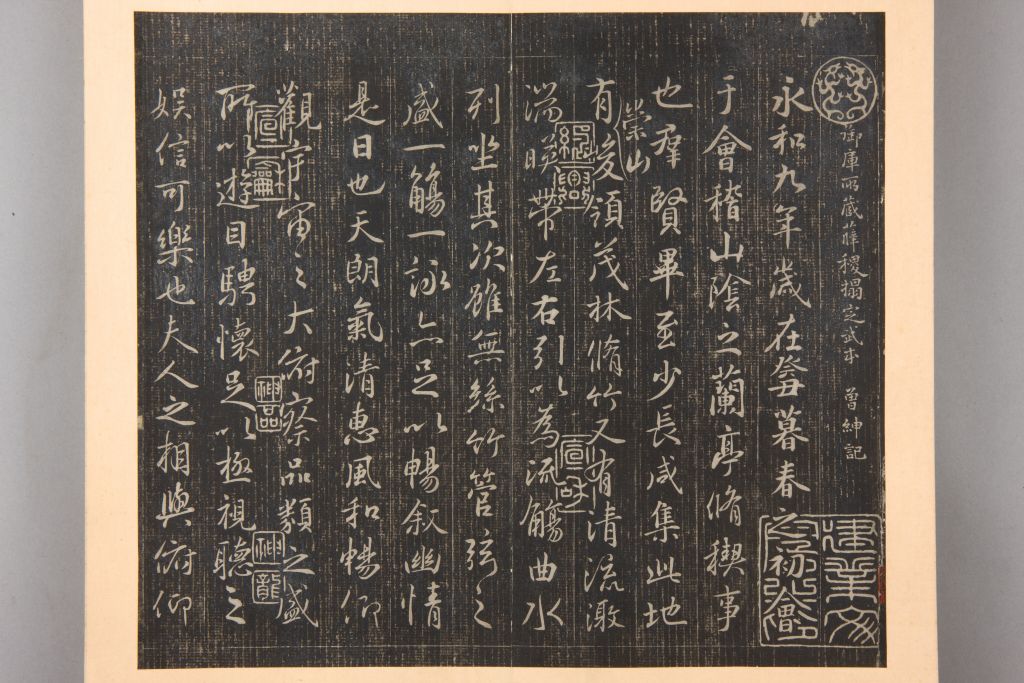 御庫所藏薛稷搨定武本 曾紳記
永和九年歲在癸丑暮春之初會
于會稽山陰之蘭亭脩稧事
也羣賢畢至少長咸集此地
有崇山峻領茂林脩竹又有清流激
湍暎帶左右引以為流觴曲水
列坐其次雖無絲竹管弦之
盛一觴一詠亦足以暢敘幽情
是日也天朗氣清惠風和暢仰
觀宇宙之大俯察品類之盛
所以遊目騁懷足以極視聽之
娛信可樂也夫人之相與俯仰
宣和
紹興
神品
神龍